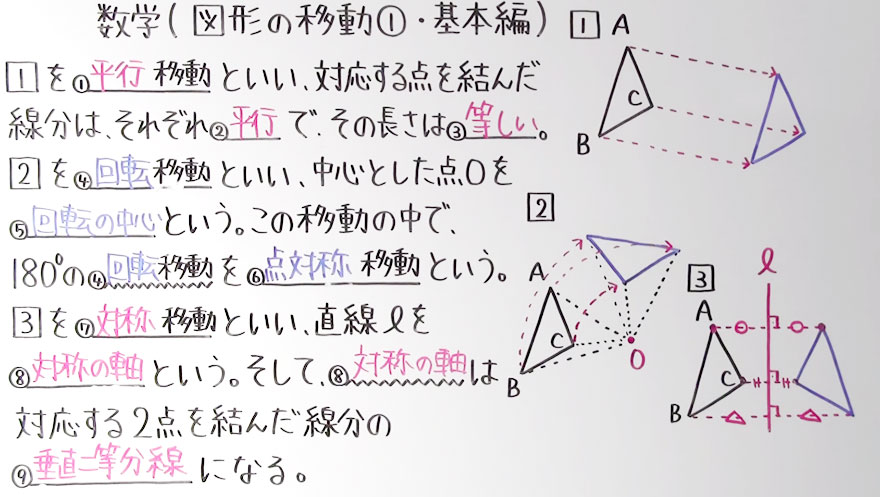 数学(図形の移動①・基本編)
1を①平行移動といい、対応する点を結んだ
線分は、それぞれ②平行で、その長さは③等しい。
2を④回転移動といい、中心とした点Oを
⑤回転の中心という。この移動の中で、
180°の④回転移動を⑥点対称移動という。
3を⑦対称移動といい、直線ℓを
⑧対称の軸という。そして、⑧対称の軸は
対応する2点を結んだ線分の
⑨垂直二等分線になる。
1
A
C
B
2
A
C
B
O
3
ℓ
A
C
B